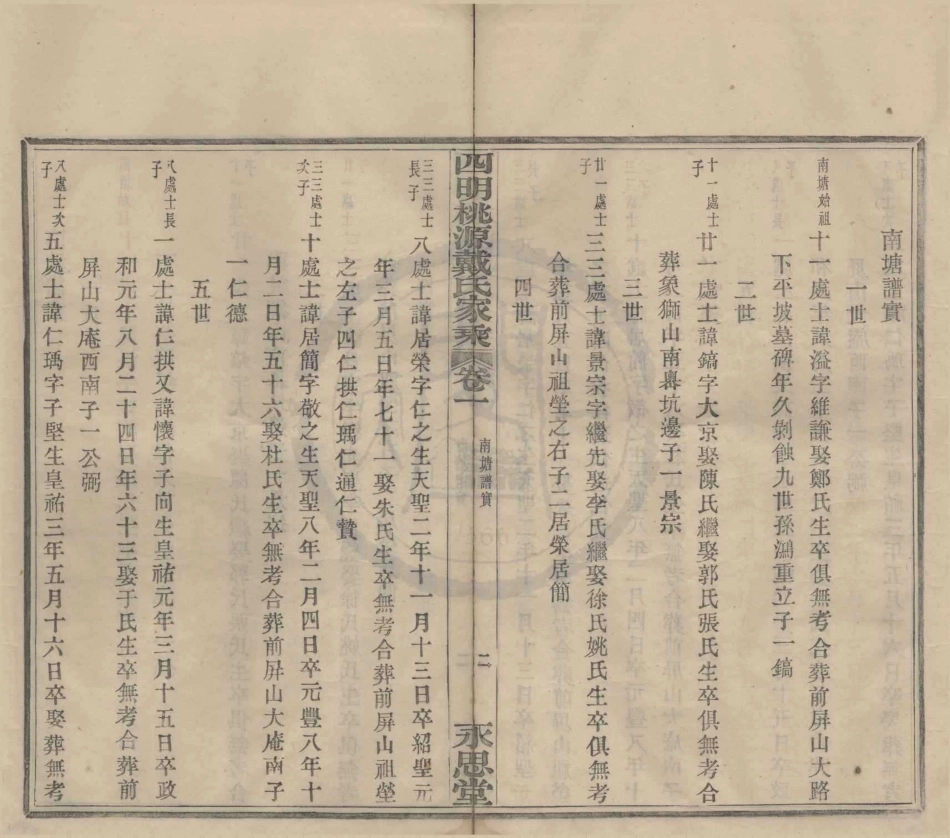 南塘譜實
一世
南塘始祖十一處士諱溢字維謙娶鄭氏生卒俱無考合葬前屏山大路
下平坡墓碑年久剝蝕九世孫澔重立子一鎬
二世
十一處士子廿一處士諱鎬字大京娶陳氏繼娶郭氏張氏生卒俱無考合
葬象獅山南坑邊子一景宗
三世
廿一處士子三三處士諱景宗字繼先娶李氏繼娶徐氏姚氏生卒俱無考
合葬前屏山祖塋之右子二居榮居簡
四世
四明桃源戴氏家乘
卷一
南塘譜實
二
永思堂
三三處士長子八處士諱居榮字仁之生天聖二年十一月十三日卒紹聖元
年三月五日年七十一娶朱氏生卒無考合葬前屏山祖塋
之左子四仁拱仁瑀仁通仁贊
三三處士次子十處士諱居簡字敬之生天聖八年二月四日卒元豐八年十
月二日年五十六娶杜氏生卒無考合葬前屏山大庵南子
一仁德
五世
八處士長子一處士諱仁拱又諱懷字子向生皇祐元年三月十五日卒政
和元年八月二十四日年六十三娶于氏生卒無考合葬前
屏山大庵西南子一公弼
八處士次子五處士諱仁瑀字子堅生皇祐三年五月十六日卒娶葬無考